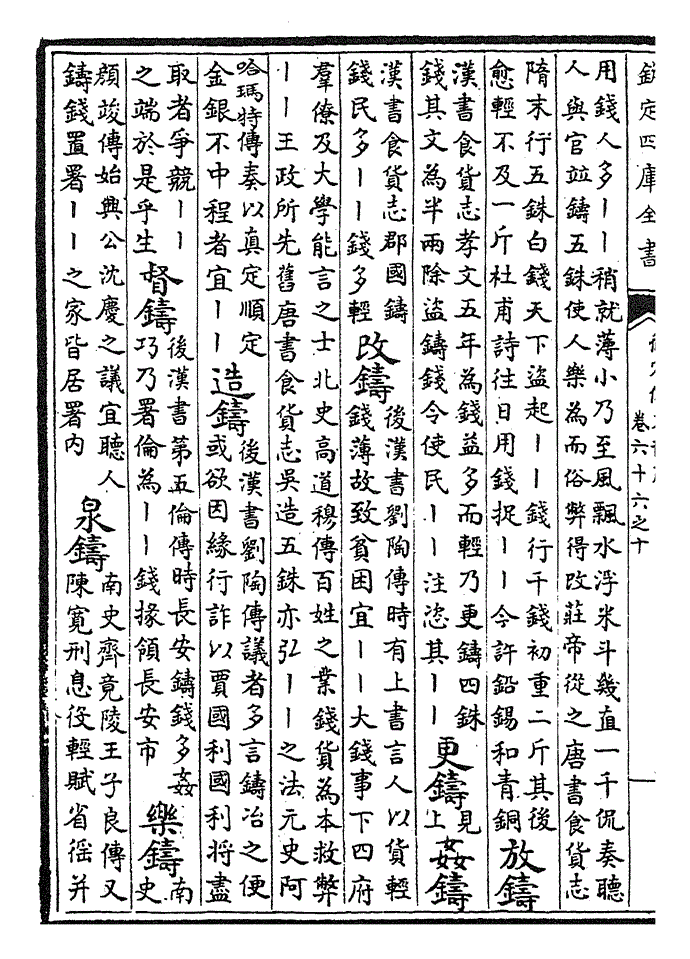 欽定四庫全書
卷六十六之十
用錢人多丨丨稍就薄小乃至風飄水浮米斗幾直一千侃奏聽
人與官竝鑄五銖使人樂為而俗弊得改莊帝從之唐書食貨志
隋末行五銖白錢天下盜起丨丨錢行千錢初重二斤其後
愈輕不及一斤杜甫詩往日用錢捉丨丨今許鉛錫和青銅
放鑄
漢書食貨志孝文五年為錢益多而輕乃更鑄四銖
錢其文為半兩除盜鑄錢令使民丨丨注恣其丨丨
更鑄
見上
姦鑄
漢書食貨志郡國鑄
錢民多丨丨錢多輕
改鑄
後漢書劉陶傳時有上書言人以貨輕
錢薄故致貧困宜丨丨大錢事下四府
羣僚及大學能言之士北史高道穆傳百姓之業錢貨為本救弊
丨丨王政所先舊唐書食貨志吳造五銖亦弘丨丨之法元史阿
哈瑪特傳奏以真定順定
金銀不中程者宜丨丨
造鑄
後漢書劉陶傳議者多言鑄冶之便
或欲因緣行詐以賈國利國利將盡
取者爭競丨丨
之端於是乎生
督鑄
後漢書第五倫傳時長安鑄錢多姦
巧乃署倫為丨丨錢掾領長安市
樂鑄
南
史
顏竣傳始興公沈慶之議宜聽人
鑄錢置署丨丨之家皆居署内
泉鑄
南史齊竟陵王子良傳又
陳寬刑息役輕賦省徭并